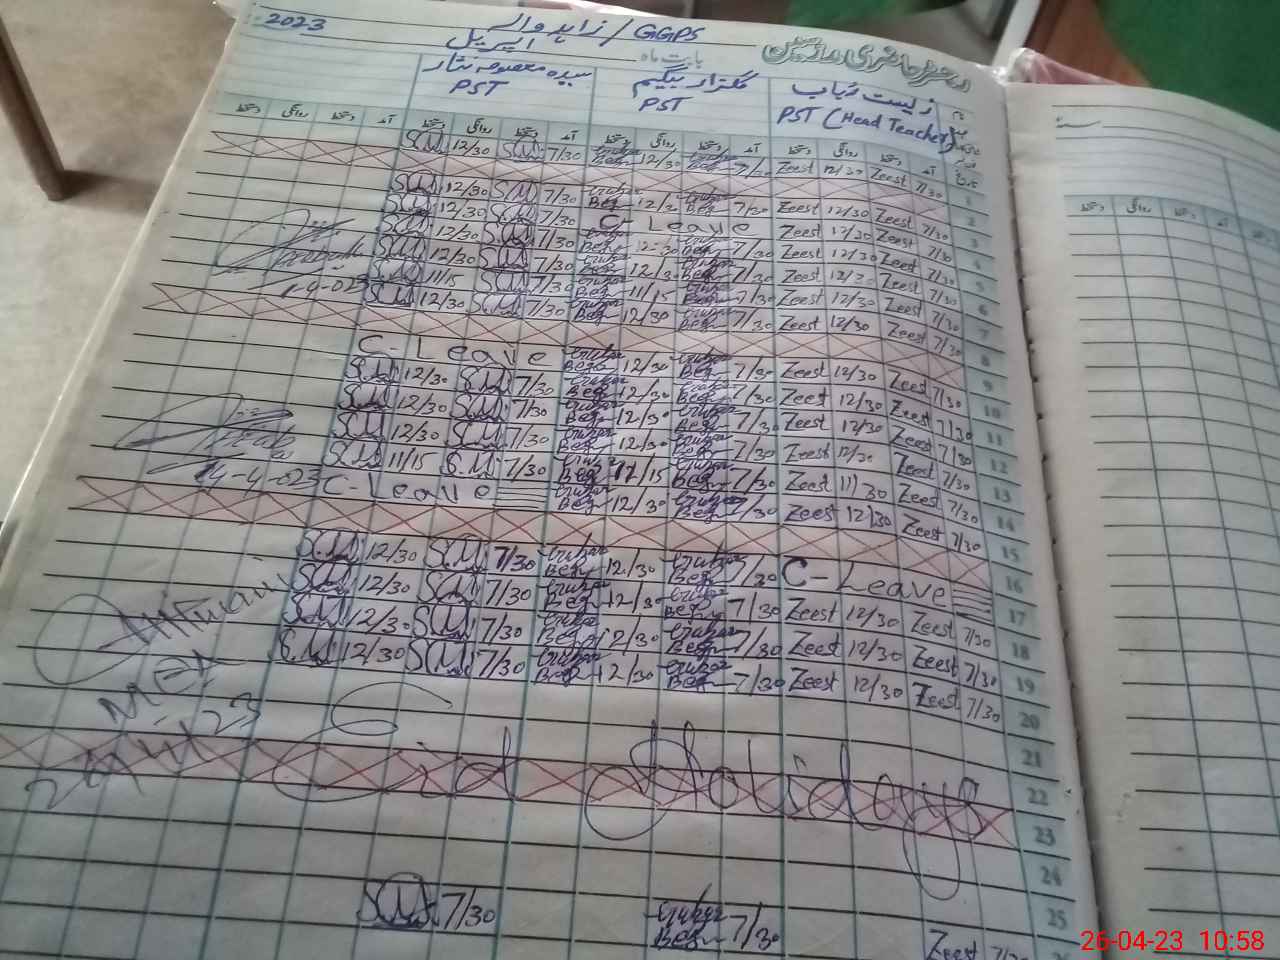 رجسٹر حاضری مدرسین بابت ماہ اپریل GGPS / زاہد وال 2023
زیست زیاب گلزار بیگم سیدہ معصومہ نثار
PST (Head Teacher) PST PST
تاریخ آمد دستخط روانگی دستخط آمد دستخط روانگی دستخط آمد دستخط روانگی دستخط آمد دستخط روانگی دستخط
1 7/30 Zeest 12/30 Zeest 7/30 Gulzar Beg 12/30 Gulzar Beg 7/30 SM 12/30 SM
2
3 7/30 Zeest 12/30 Zeest 7/30 Gulzar Beg 12/30 Gulzar Beg 7/30 SM 12/30 SM
4 7/30 Zeest 12/30 Zeest C-Leave 7/30 SM 12/30 SM
5 7/30 Zeest 12/30 Zeest 7/30 Gulzar Beg 12-30 Gulzar Beg 7/30 SM 12/30 SM
6 7/30 Zeest 12/30 Zeest 7/30 Gulzar Beg 12/30 Gulzar Beg 7/30 SM 12/30 SM
7 7/30 Zeest Zeest 7/30 Gulzar Beg 11/15 Gulzar Beg 7/30 SM 11/15 SM
8 7/30 Zeest 12/30 Zeest 7/30 Gulzar Beg 12/30 Gulzar Beg 7/30 SM 12/30 SM
9
10 7/30 Zeest 12/30 Zeest 7/30 Gulzar Beg 12/30 Gulzar Beg C-Leave
11 7/30 Zeest 12/30 Zeest 7/30 Gulzar Beg 12/30 Gulzar Beg 7/30 SM 12/30 SM
12 7/30 Zeest 12/30 Zeest 7/30 Gulzar Beg 12/30 Gulzar Beg 7/30 SM 12/30 SM
13 7/30 Zeest 12/30 Zeest 7/30 Gulzar Beg 12/30 Gulzar Beg 7/30 SM 12/30 SM
14 7/30 Zeest 11/30 Zeest 7/30 Gulzar Beg 11/15 Gulzar Beg 7/30 S.M 11/15 SM
14-4-023
15 7/30 Zeest 12/30 Zeest 7/30 Gulzar Beg 12/30 Gulzar Beg C-Leave
16
17 C-Leave 7/30 Gulzar Beg 12/30 Gulzar Beg 7/30 SM 12/30 S.M
18 7/30 Zeest 12/30 Zeest 7/30 Gulzar Beg 12/30 Gulzar Beg 7/30 SM 12/30 SM
19 7/30 Zeest 12/30 Zeest 7/30 Gulzar Beg 12/30 Gulzar Beg 7/30 SM 12/30 SM
20 7/30 Zeest 12/30 Zeest 7/30 Gulzar Beg 12/30 Gulzar Beg 7/30 SM 12/30 S.M
21
22
23 Eid Holidays
24
25
7/30 Zeest 7/30 Gulzar Beg 7/30 SM
سنہ
آمد دستخط روانگی دستخط
26-04-23 10:58